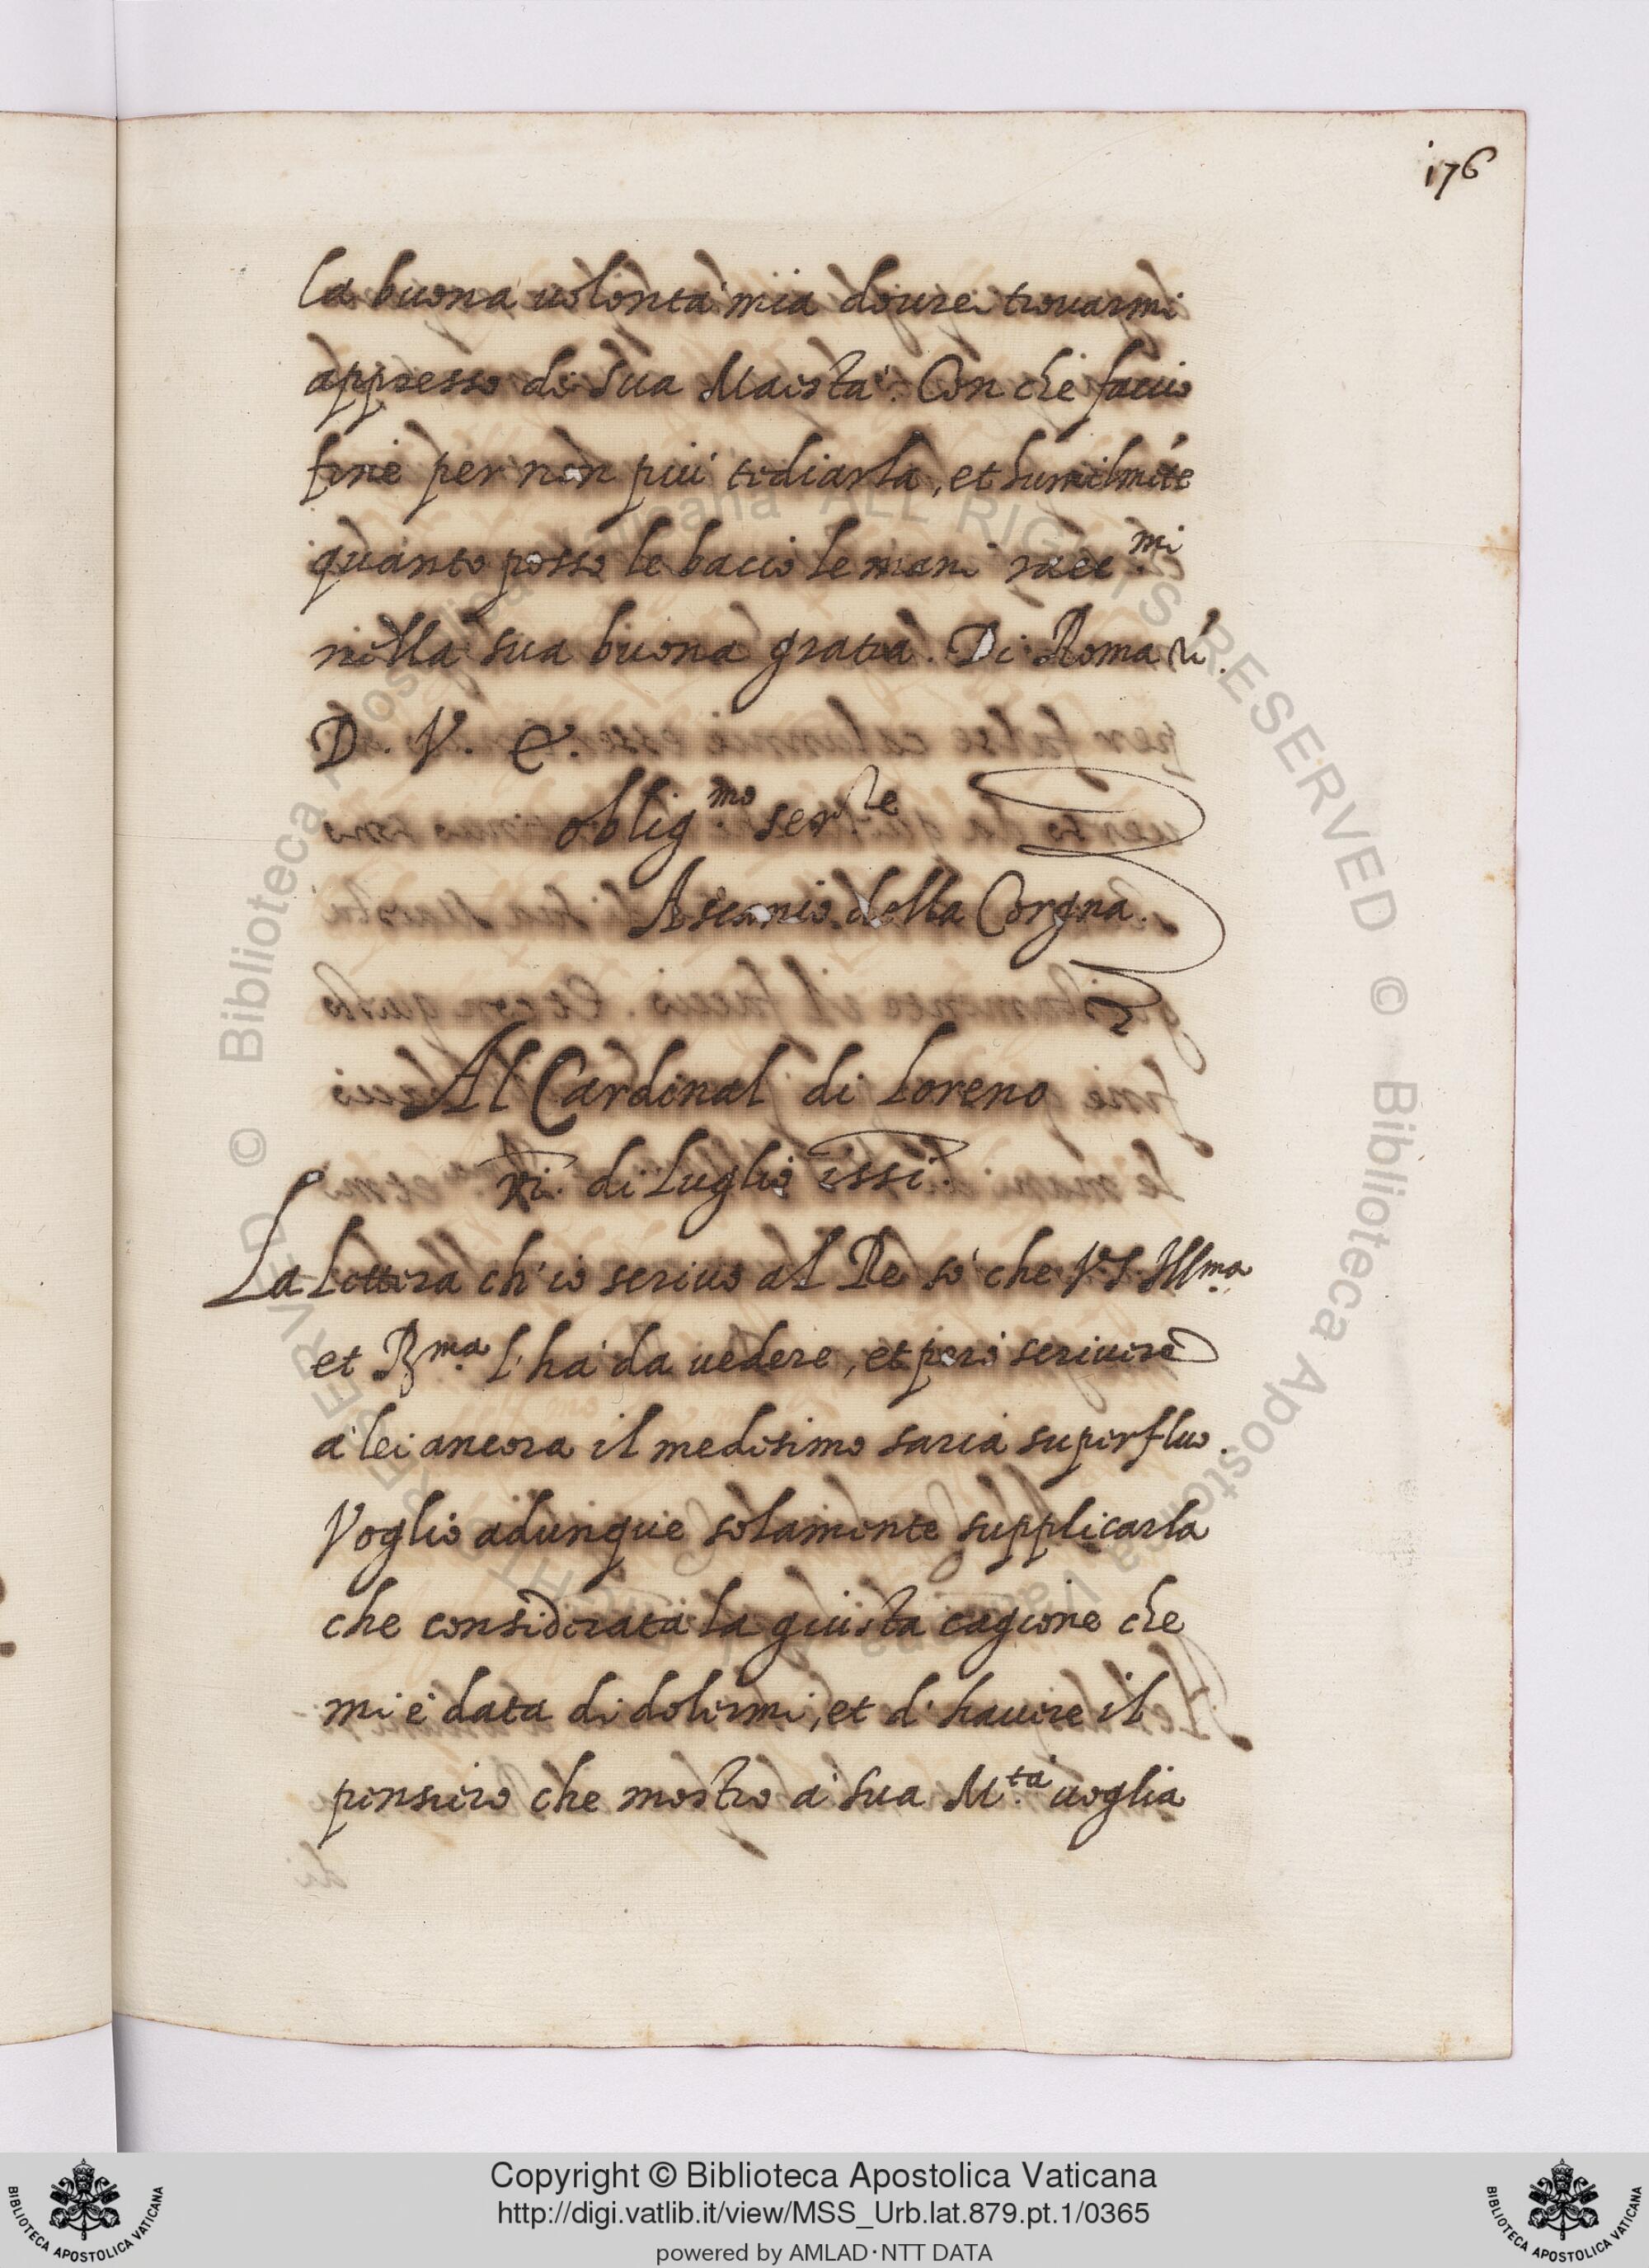 176
la buona uolontà mia dourei trouarmi
appresso di Sua Maestà. Con che faccio
fine per non più tediarla, et humilmẽte
quanto posso le bacio le mani racc.mi
nella sua buona gratia. Di Roma
D. V. &.
oblig.mo ser.re
Ascanio della Corgna.
Al Cardinal di Loreno
xi. di Luglio 1551.
La lettera ch'io scriuo al Re sò che V.S. Ill.ma
et R.ma l'hà da uedere, et però scriuere
à lei ancora il medesimo saria superfluo.
Voglio adunque solamente supplicarla
che considerata la giusta cagione che
mi è data di dolermi, et d'hauere il
pensiero che mostro à Sua M.tà uoglia
© Biblioteca Apostolica Vaticana ALL RIGHTS RESERVED
© Biblioteca Apostolica Vaticana ALL RIGHTS RESERVED
Copyright © Biblioteca Apostolica Vaticana
http://digi.vatlib.it/view/MSS_Urb.lat.879.pt.1/0365
powered by AMLAD·NTT DATA
BIBLIOTECA APOSTOLICA VATICANA
BIBLIOTECA APOSTOLICA VATICANA